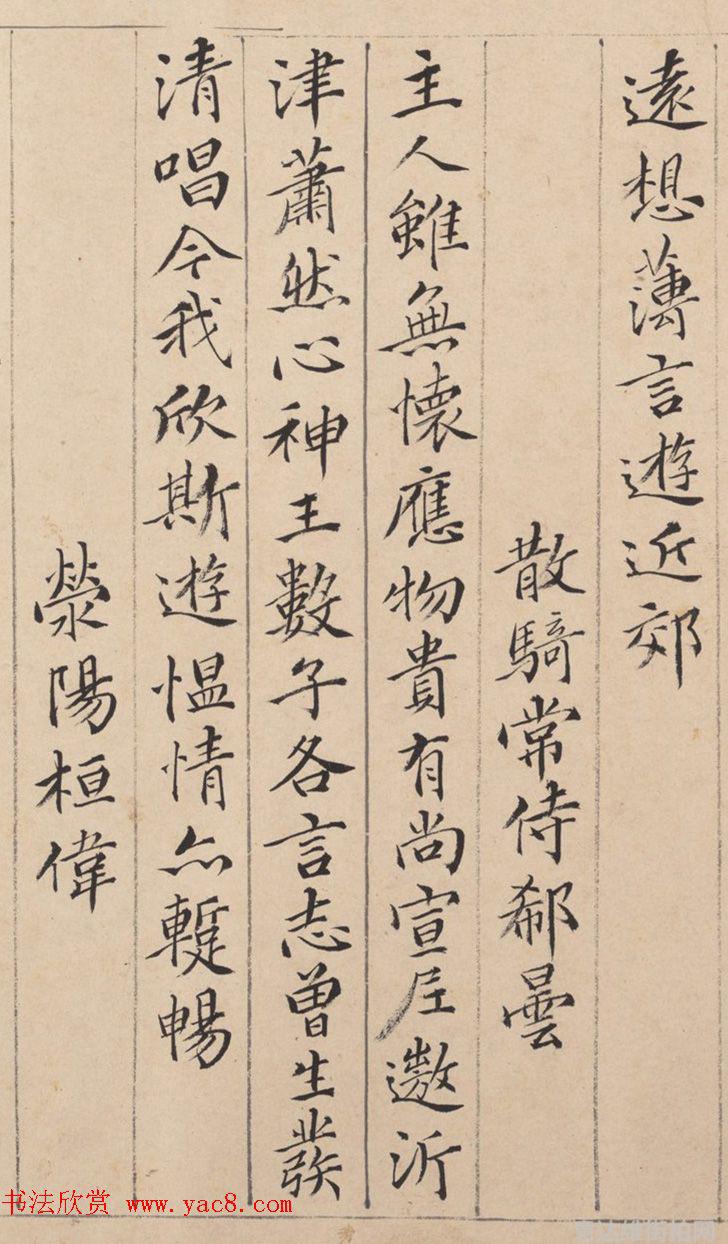 遠想薄言遊近郊
散騎常侍郗曇
主人雖無懷應物貴有尚宣尼遨沂
津蕭然心神王數子各言志曾生發
清唱今我欣斯遊愠情亦蹔暢
滎陽桓偉
书法欣赏 www.yac8.com